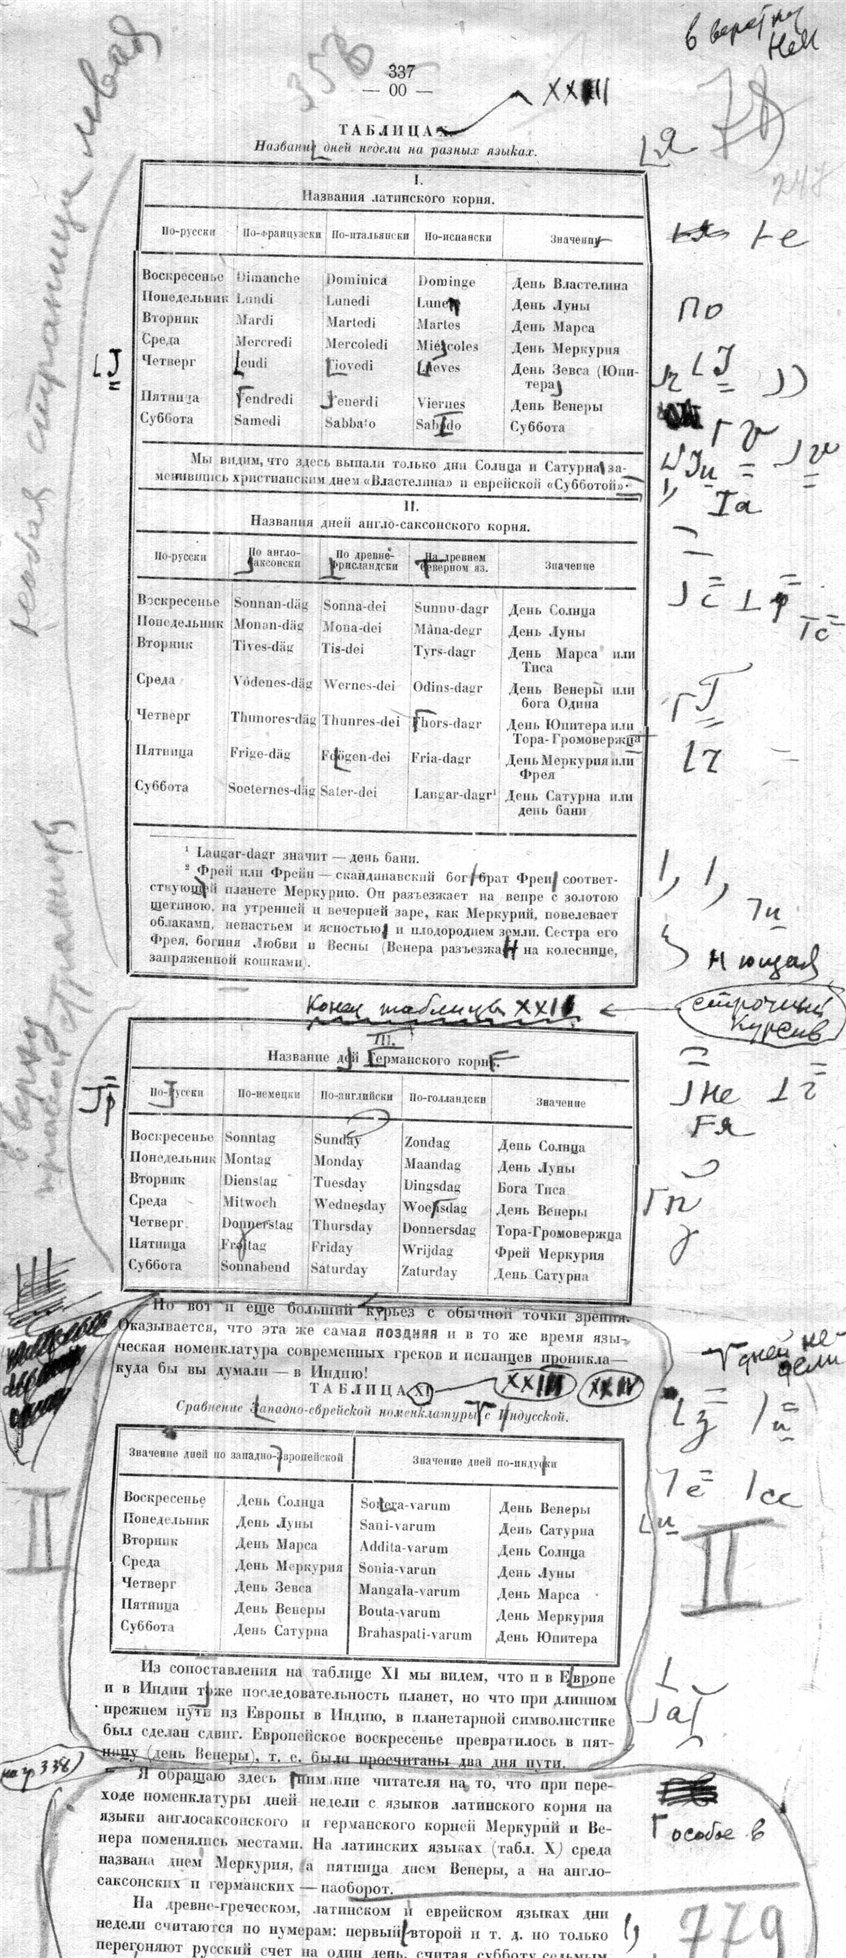 в верстку
Нем
337
— 00 —
XXIII
ТАБЛИЦА X.
Названи дней недели на разных языках.
78
247
I.
Названия латинского корня.
По-русски По-французски По-итальянски По-испански Значени
Воскресенье Dimanche Dominica Dominge День Властелина
Понедельник Lundi Lunedi Lune День Луны
Вторник Mardi Martedi Martes День Марса
Среда Mercredi Mercoledi Mie coles День Меркурия
Четверг eudi iovedi eves День Зевса (Юпи-
тера
Пятница endredi enerdi Viernes День Венеры
Суббота Samedi Sabbato Sab do Суббота
Мы видим, что здесь выпали только дни Солнца и Сатурна за-
менившись христианским днем «Властелина» и еврейской «Субботой».
II.
Названия дней англо-саксонского корня.
По-русски По англо-саксонски По древне-фрисландски На древнем северном яз. Значение
Воскресенье Sonnan-däg Sonna-dei Sunnu-dagr День Солнца
Понедельник Monan-däg Mona-dei Mâna-degr День Луны
Вторник Tives-däg Tis-dei Tyrs-dagr День Марса или
Тиса
Среда Vôdenes-däg Wernes-dei Odins-dagr День Венеры или
бога Одина
Четверг Thunores-däg Thunres-dei hors-dagr День Юпитера или
Тора-Громовержца
Пятница Frige-däg F ögen-dei Fria-dagr День Меркурия или
Фрея
Суббота Soeternes-däg Sater-dei Laugar-dagr¹ День Сатурна или
день бани
¹ Laugar-dagr значит — день бани.
² Фрей или Фрейн — скандинавский бог брат Фреи соответ-
ствующей планете Меркурию. Он разъезжает на вепре с золотою
щетиною, на утренней и вечерней заре, как Меркурий, повелевает
облаками, ненастьем и ясностью и плодородием земли. Сестра его
Фрея, богиня Любви и Весны (Венера разъезжа на колеснице,
запряженной кошками).
н ющая
Конец таблицы XXII
строчный
курсив
III.
Название д й Германского корн .
По-Русски По-немецки По-английски По-голландски Значение
Воскресенье Sonntag Sunday Zondag День Солнца
Понедельник Montag Monday Maandag День Луны
Вторник Dienstag Tuesday Dingsdag Бога Тиса
Среда Mitwoch Wednesday Woe sdag День Венеры
Четверг Donnerstag Thursday Donnersdag Тора-Громовержца
Пятница Fr tag Friday Wrijdag Фрей Меркурия
Суббота Sonnabend Saturday Zaturday День Сатурна
Но вот и еще больший курьез с обычной точки зрения.
Оказывается, что эта же самая поздняя и в то же время язы-
ческая номенклатура современных греков и испанцев проникла—
куда бы вы думали — в Индию!
дней не-
дели
ТАБЛИЦА XI
XXIII XXIV
Сравнение Западно-еврейской номенклатуры с Индусской.
Значение дней по западно-Европейской Значение дней по-индуски
Воскресенье День Солнца So ra-varum День Венеры
Понедельник День Луны Sani-varum День Сатурна
Вторник День Марса Addita-varum День Солнца
Среда День Меркурия Sonia-varun День Луны
Четверг День Зевса Mangala-varum День Марса
Пятница День Венеры Bouta-varum День Меркурия
Суббота День Сатурна Brahaspati-varum День Юпитера
II
II
Из сопоставления на таблице XI мы видем, что и в Европе
и в Индии т же последовательность планет, но что при длинном
прежнем пути из Европы в Индию, в планетарной символистике
был сделан сдвиг. Европейское воскресенье превратилось в пят-
ницу (день Венеры), т. е. были просчитаны два дня пути.
на стр 338
Я обращаю здесь внимание читателя на то, что при пере-
ходе номенклатуры дней недели с языков латинского корня на
языки англосаксонского и германского корней Меркурий и Ве-
нера поменялись местами. На латинских языках (табл. X) среда
названа днем Меркурия, а пятница днем Венеры, а на англо-
саксонских и германских — наоборот.
особое в
На древне-греческом, латинском и еврейском языках дни
недели считаются по нумерам: первый второй и т. д. но только
перегоняют русский счет на один день, считая субботу седьмым
779